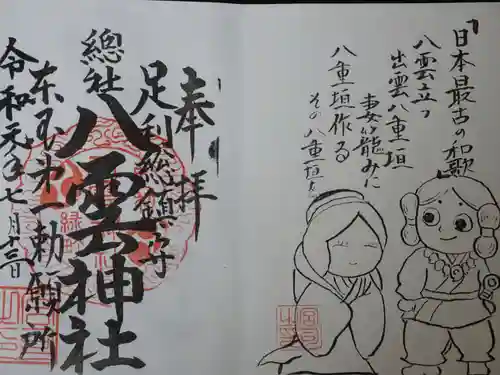 日本最古の和歌
八雲立つ
出雲八重垣
妻籠みに
八重垣作る
その八重垣を
奉拝
足利総鎮守
總社
八雲神社
東国第一勅願所
令和元年七月十三日